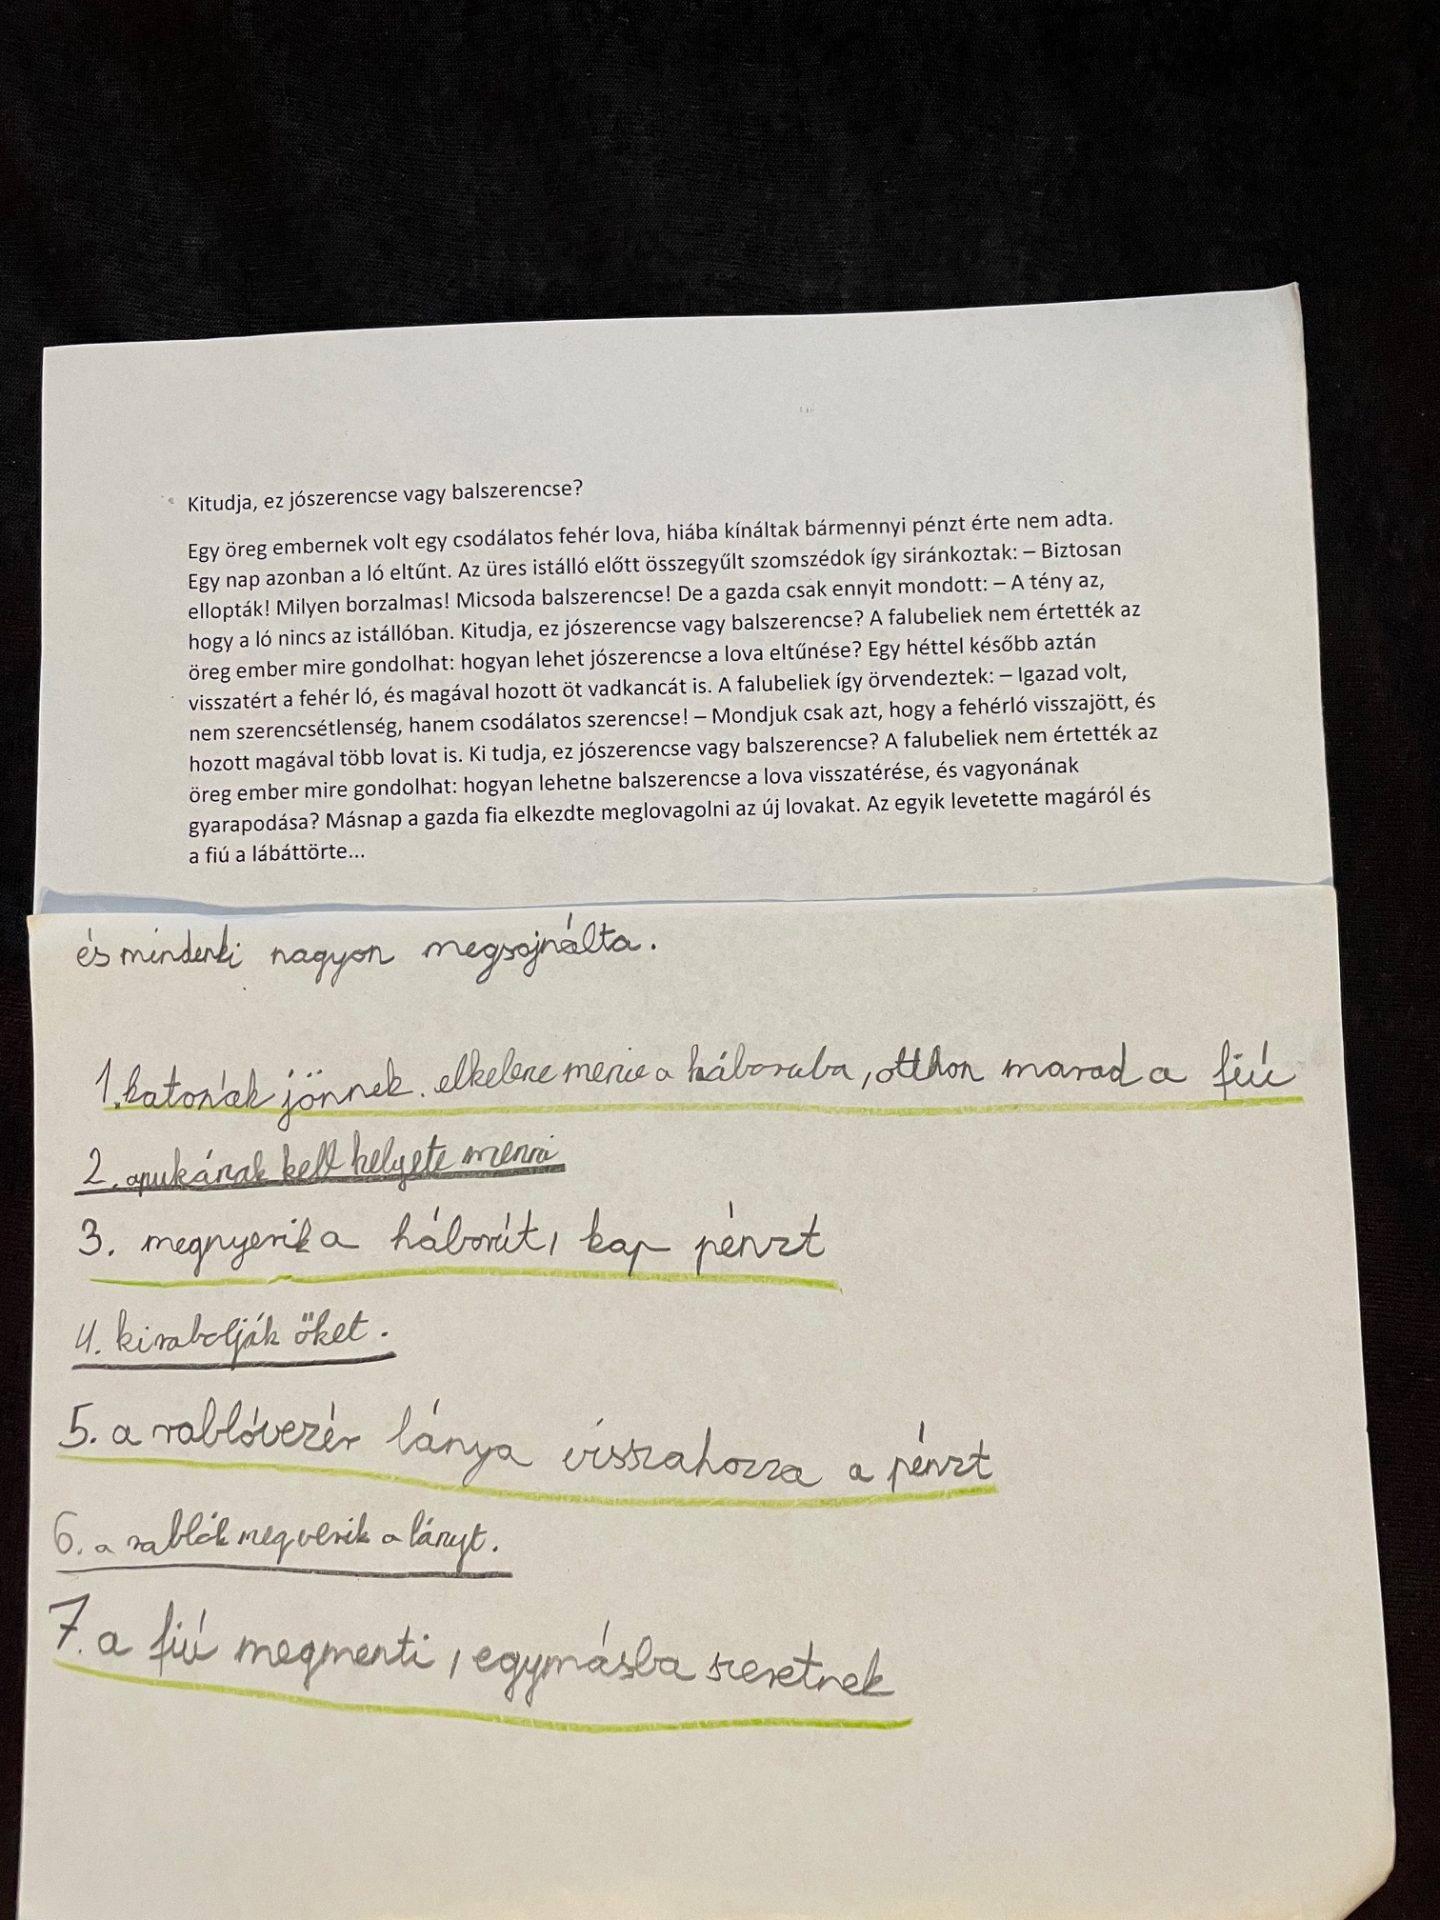 Kitudja, ez jószerencse vagy balszerencse?
Egy öreg embernek volt egy csodálatos fehér lova, hiába kínáltak bármennyi pénzt érte nem adta.
Egy nap azonban a ló eltűnt. Az üres istálló előtt összegyűlt szomszédok így siránkoztak: – Biztosan
ellopták! Milyen borzalmas! Micsoda balszerencse! De a gazda csak ennyit mondott: – A tény az,
hogy a ló nincs az istállóban. Kitudja, ez jószerencse vagy balszerencse? A falubeliek nem értették az
öreg ember mire gondolhat: hogyan lehet jószerencse a lova eltűnése? Egy héttel később aztán
visszatért a fehér ló, és magával hozott öt vadkancát is. A falubeliek így örvendeztek: – Igazad volt,
nem szerencsétlenség, hanem csodálatos szerencse! – Mondjuk csak azt, hogy a fehérló visszajött, és
hozott magával több lovat is. Ki tudja, ez jószerencse vagy balszerencse? A falubeliek nem értették az
öreg ember mire gondolhat: hogyan lehetne balszerencse a lova visszatérése, és vagyonának
gyarapodása? Másnap a gazda fia elkezdte meglovagolni az új lovakat. Az egyik levetette magáról és
a fiú a lábáttörte...
és mindenki nagyon megsajnálta.
1. katonák jönnek. elkelene menie a háboruba, otthon marad a fiú
2. apukának kell helyete menni
3. megnyerik a háborút, kap pénzt
4. kirabolják őket.
5. a rablóvezér lánya visszahozza a pénzt
6. a rablók megverik a lányt.
7. a fiú megmenti, egymásba szeretnek